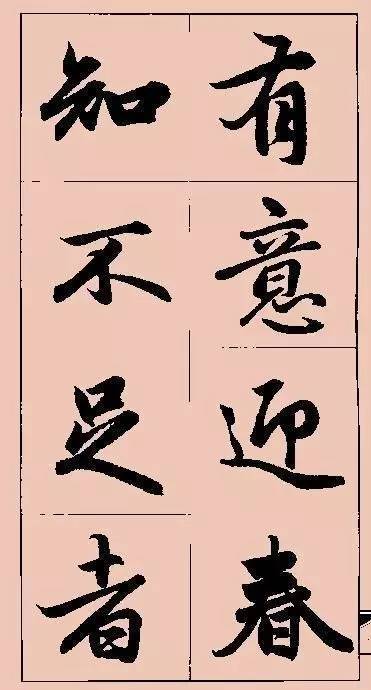 有意迎春
知不足者